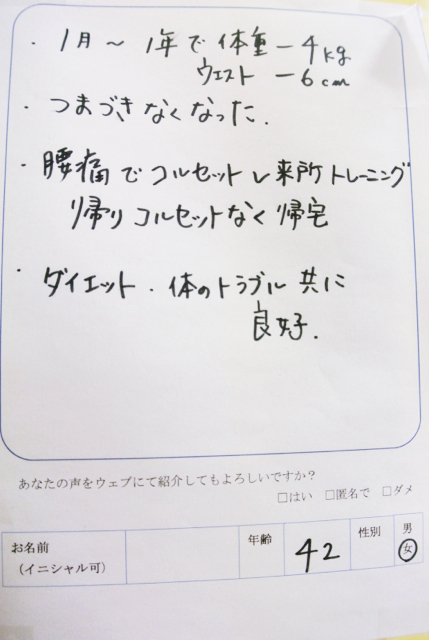 ・1月～1年で体重－4kg
ウエスト －6cm
・つまづきなくなった.
・腰痛でコルセットし来所トレーニング
帰りコルセットなく帰宅
・ダイエット.体のトラブル共に
良好.
あなたの声をウェブにて紹介してもよろしいですか？
□はい □匿名で □ダメ
お名前
（イニシャル可）
年齢
42
性別
男
女